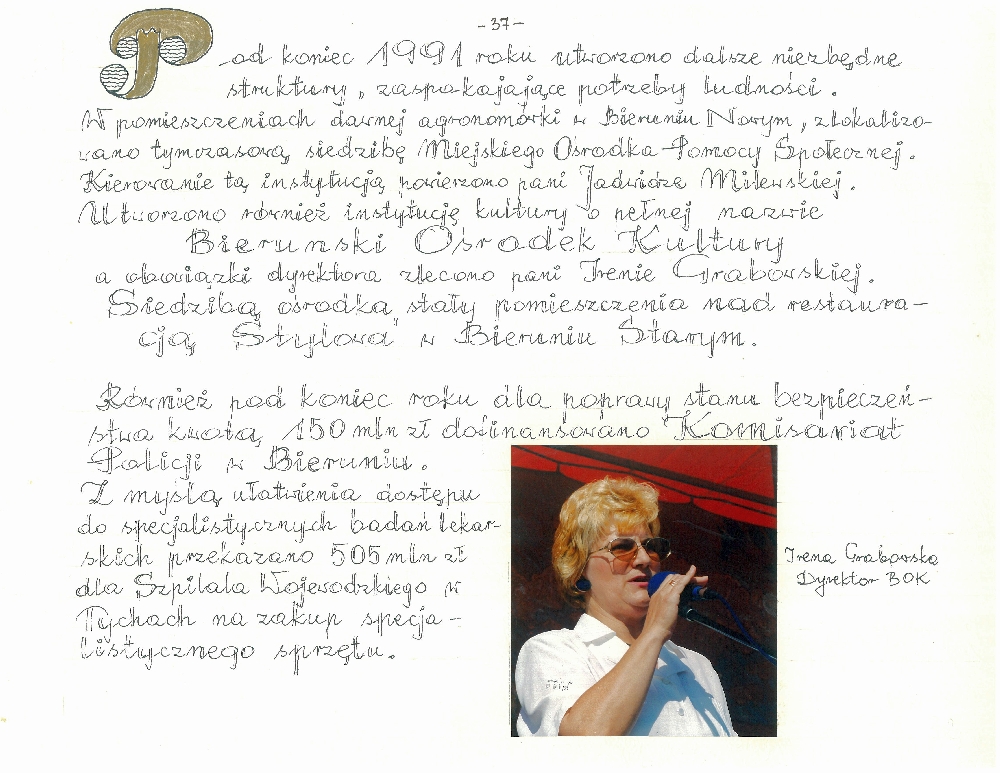 - 37 -
Pod koniec 1991 roku utworzono dalsze niezbędne
struktury, zaspakajające potrzeby ludności.
W pomieszczeniach dawnej agronomówki w Bieruniu Nowym, zlokalizo-
wano tymczasową siedzibę Miejskiego Ośrodka Pomocy Społecznej.
Kierowanie tą instytucją powierzono pani Jadwidze Milewskiej.
Utworzono również instytucję kultury o pełnej nazwie
Bieruński Ośrodek Kultury
a obowiązki dyrektora zlecono pani Irenie Grabowskiej.
Siedzibą ośrodka stały pomieszczenia nad restaura-
cją „Stylowa" w Bieruniu Starym.
Również pod koniec roku dla poprawy stanu bezpieczeń-
stwa kwotą 150 mln zł dofinansowano Komisariat
Policji w Bieruniu.
Z myślą ułatwienia dostępu
do specjalistycznych badań lekar-
skich przekazano 505 mln zł
dla Szpitala Wojewodzkiego w
Tychach na zakup specja-
listycznego sprzętu.
Irena Grabowska
Dyrektor BOK